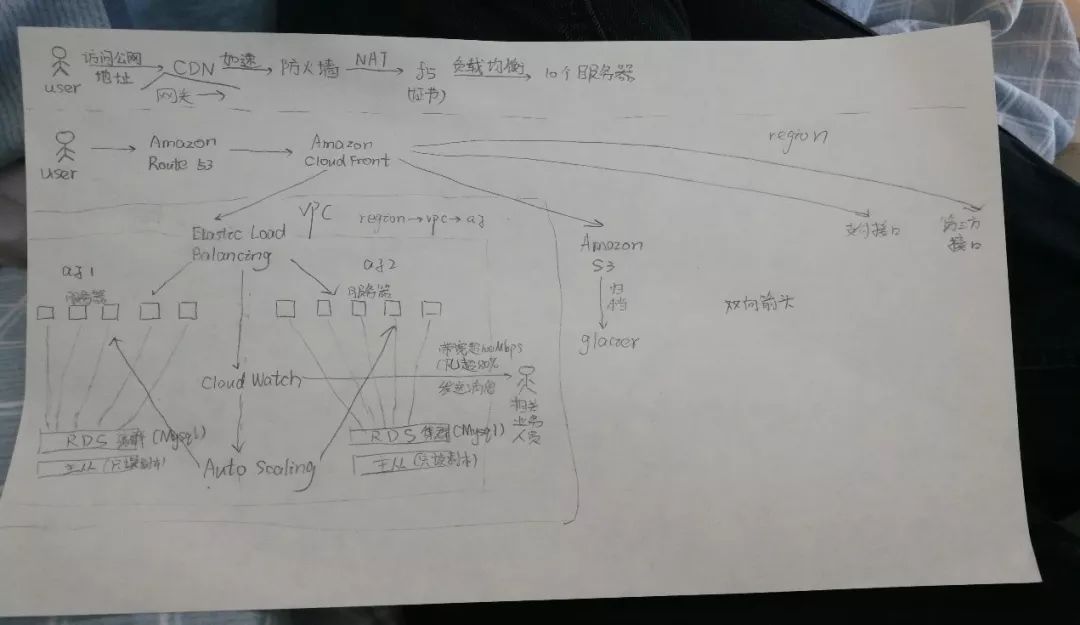 访问公网
地址
user
CDN
加速
防火墙
NAT
f5
(证书)
负载均衡
10个服务器
网关
user
Amazon
Route 53
Amazon
CloudFront
region
支付接口
第三方
接口
VPC
region→vpc→az
Elastic Load
Balancing
Amazon
S3
归档
glacier
双向箭头
az1
服务器
az2
服务器
Cloud Watch
带宽超100Mbps
CPU超80%
发送消息
相关
业务
人员
RDS 集群 (Mysql)
主从 (只读副本)
Auto Scaling
RDS 集群 (Mysql)
主从 (只读副本)